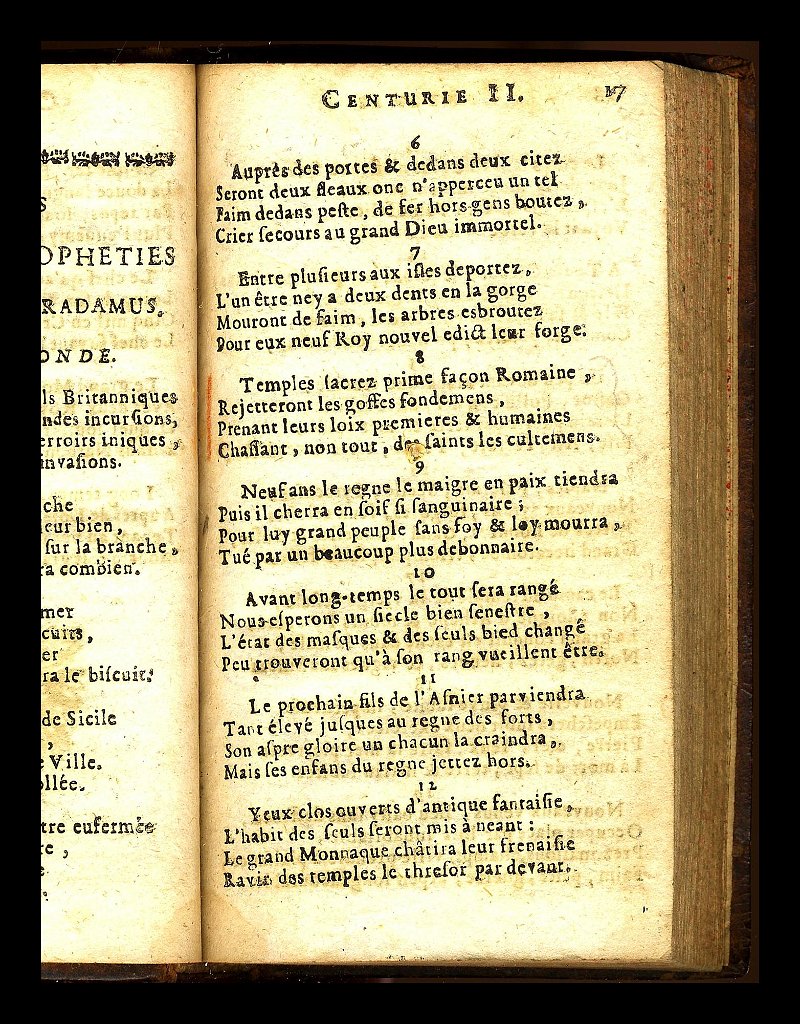 S
OPHETIES
RADAMUS.
ONDE.
ls Britanniques
ndes incurſions,
erroirs iniques,
invaſions.
che
eur bien,
ſur la branche,
ra combien.
mer
cuits,
er
ra le biſcuit.
de Sicile
,
e Ville.
ollée.
tre eufermée
re,
e
.
CENTURIE II. 17
6
Auprès des portes & dedans deux citez
Seront deux fleaux onc n'apperceu un tel
Faim dedans peſte, de fer hors gens boutez,
Crier ſecours au grand Dieu immortel.
7
Entre pluſieurs aux iſles deportez,
L'un être ney a deux dents en la gorge
Mouront de faim, les arbres esbroutez
Pour eux neuf Roy nouvel edict leur forge.
8
Temples ſacrez prime façon Romaine,
Rejetteront les goffes fondemens,
Prenant leurs loix premieres & humaines
Chaſſant, non tout, des ſaints les cultemens.
9
Neuf ans le regne le maigre en paix tiendra
Puis il cherra en ſoif ſi ſanguinaire;
Pour luy grand peuple ſans foy & loy mourra,
Tué par un beaucoup plus debonnaire.
10
Avant long-temps le tout ſera rangé
Nous eſperons un ſiecle bien ſeneſtre,
L'état des maſques & des ſeuls bied changé
Peu trouveront qu'à ſon rang vueillent être.
11
Le prochain fils de l'Aſnier parviendra
Tant élevé juſques au regne des forts,
Son aſpre gloire un chacun la craindra,
Mais ſes enfans du regne jettez hors.
12
Yeux clos ouverts d'antique fantaiſie,
L'habit des ſeuls ſeront mis à neant:
Le grand Monnaque châtira leur frenaiſie
Ravir des temples le threſor par devant.